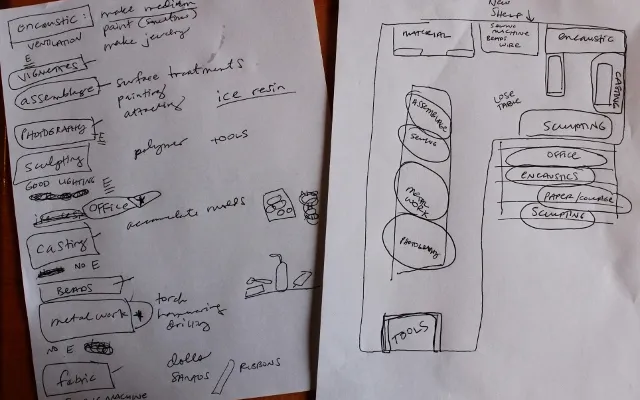 encaustic:
make medium
paint (sometimes)
VENTILATION
make jewelry
E
VIGNETTES
assemblage
surface treatments
painting
attaching
ice resin
PHOTOGRAPHY
E
Sculpting
polymer TOOLS
GOOD LIGHTING E
OFFICE
accumulate molds
Casting
NO E
BEADS
metal work
torch
hammering
drilling
NO E
fabric
dolls
SANTOS
RIBBONS
MACHINE
NEW
SHELF
MATERIAL
SEWING MACHINE
BEADS
WIRE
encaustic
CASTING
LOSE
TABLE
ASSEMBLAGE
SEWING
METAL
WORK
PHOTOGRAPHY
TOOLS
SCULPTING
OFFICE
ENCAUSTICS
PAPER/COLLAGE
SCULPTING